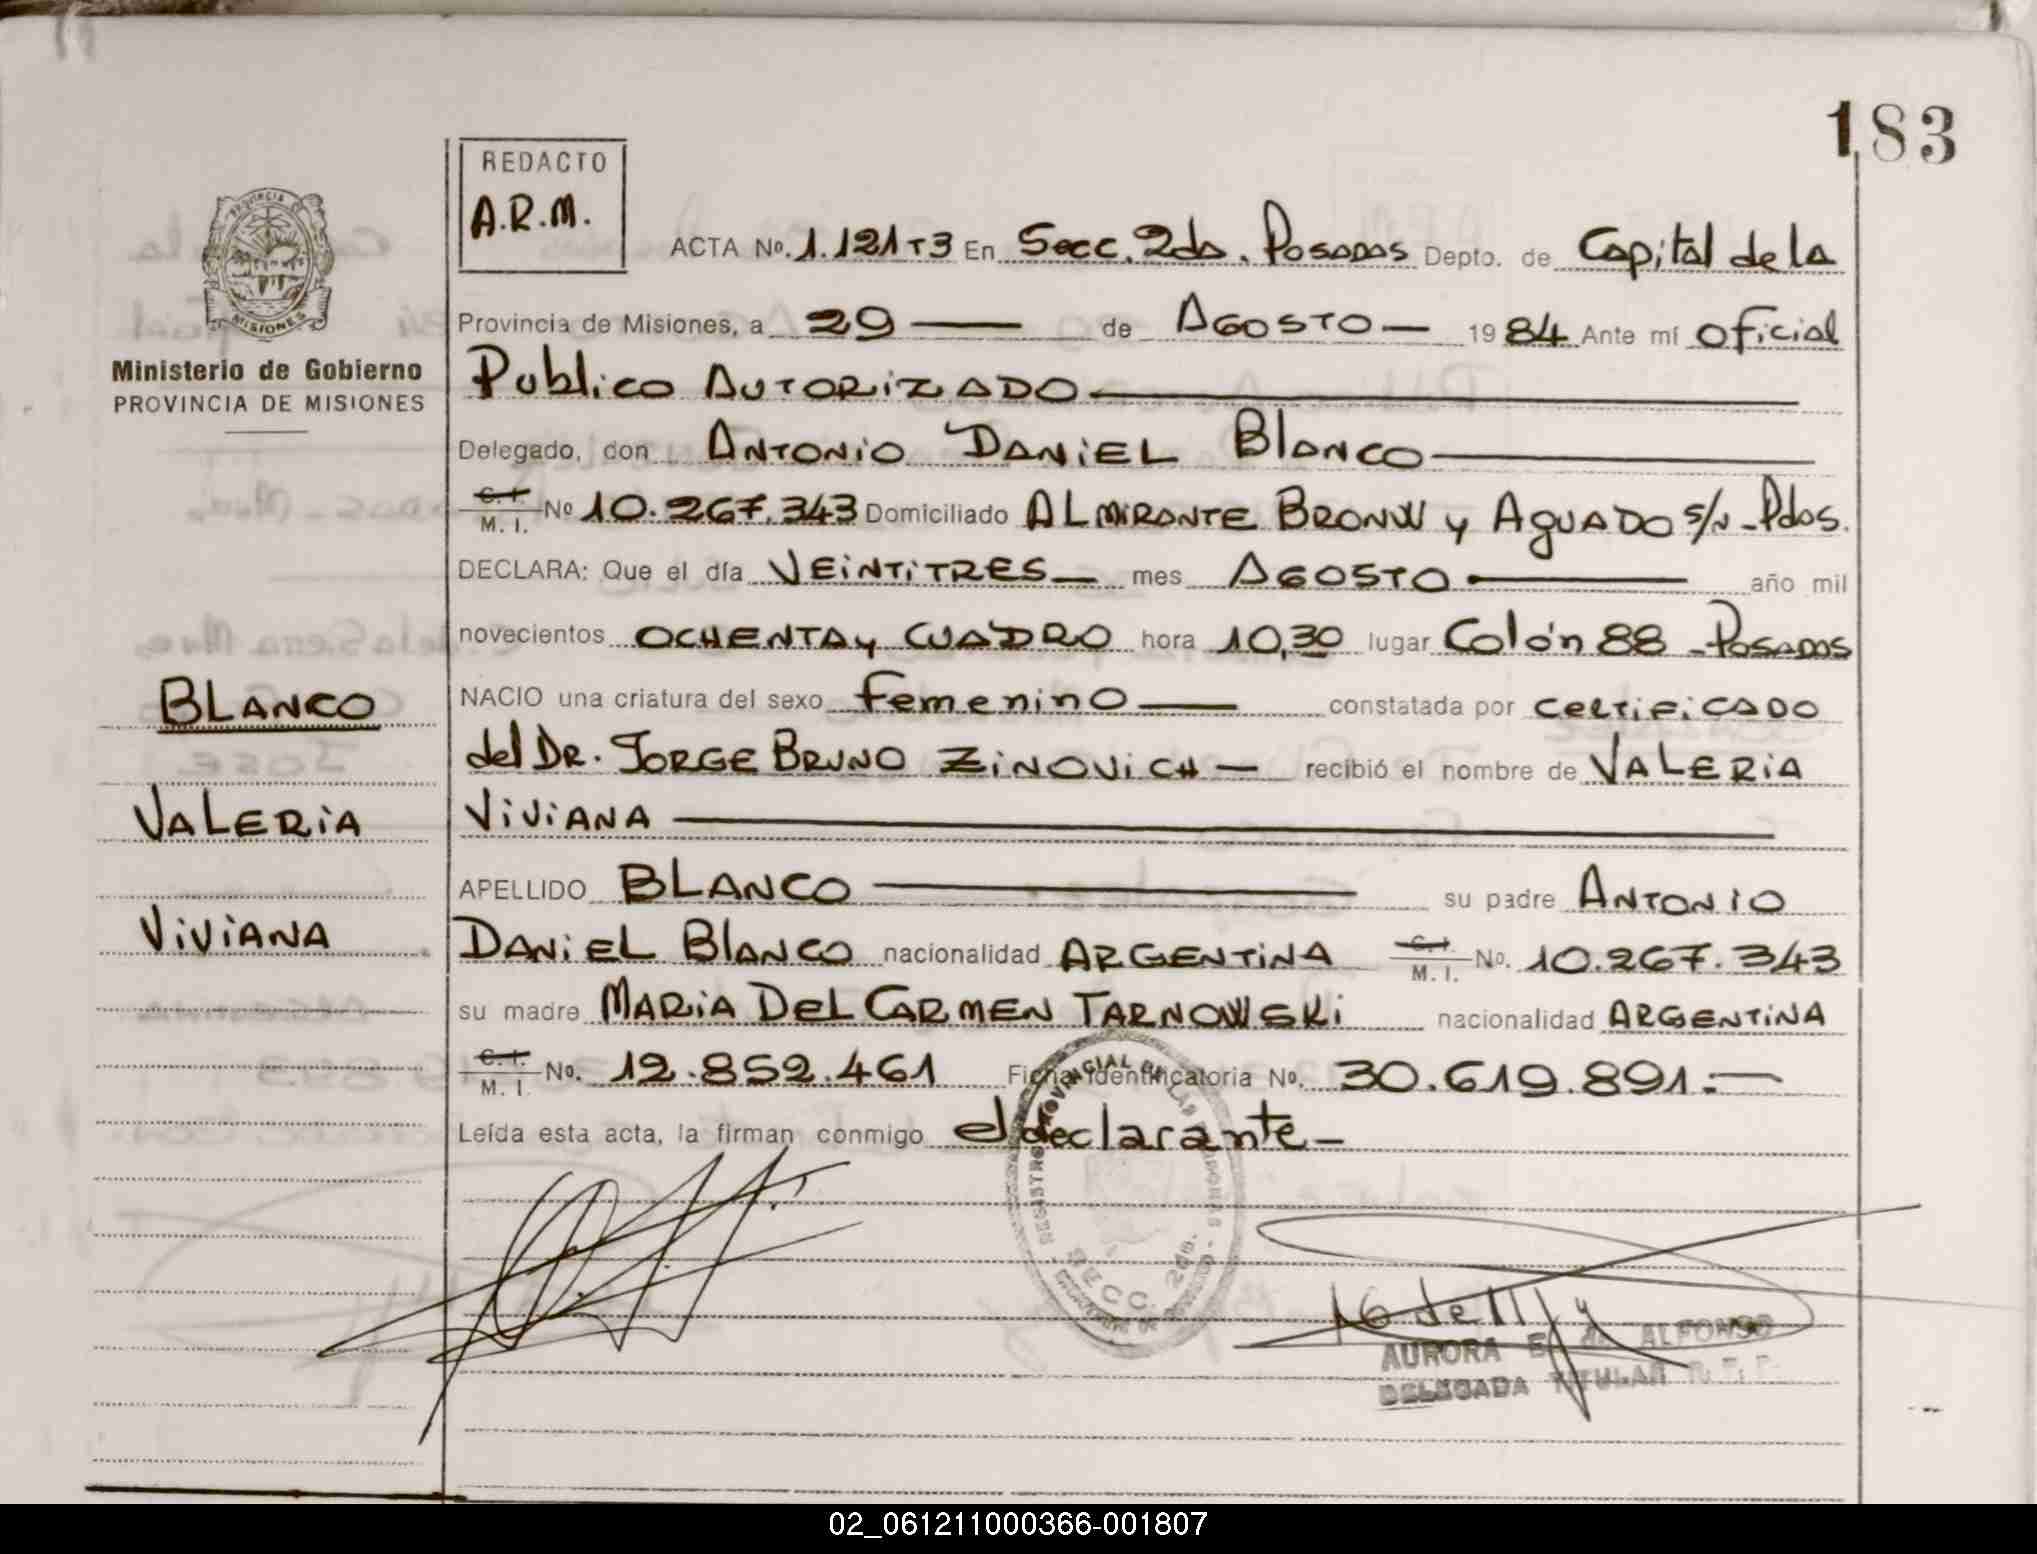 183
REDACTO
A.R.M.
PROVINCIA DE
MISIONES
Ministerio de Gobierno
PROVINCIA DE MISIONES
BLANCO
VALERIA
VIVIANA
ACTA Nº. 1.121 T3 En Secc. 2da. Posadas Depto. de Capital de la
Provincia de Misiones, a 29 — de Agosto — 1984 Ante mí Oficial
Publico Autorizado —
Delegado, don Antonio Daniel Blanco —
C. I. / M. I. Nº 10.267.343 Domiciliado Almirante Bronw y Aguado s/n - Pdas.
DECLARA: Que el día Veintitres — mes Agosto — año mil
novecientos Ochenta y Cuadro hora 10,30 lugar Colón 88 - Posadas
NACIO una criatura del sexo Femenino — constatada por certificado
del Dr. Jorge Bruno Zinovich — recibió el nombre de Valeria
Viviana —
APELLIDO Blanco — su padre Antonio
Daniel Blanco nacionalidad Argentina C. I. / M. I. Nº. 10.267.343
su madre Maria Del Carmen Tarnowski nacionalidad Argentina
C. I. / M. I. Nº. 12.852.461 Ficha Identificatoria Nº. 30.619.891.—
Leída esta acta, la firman conmigo el declarante —
REGISTRO PROVINCIAL DE LAS PERSONAS
SECC. 2da.
AURORA E. ALFONSO
DELEGADA TITULAR
02_061211000366-001807